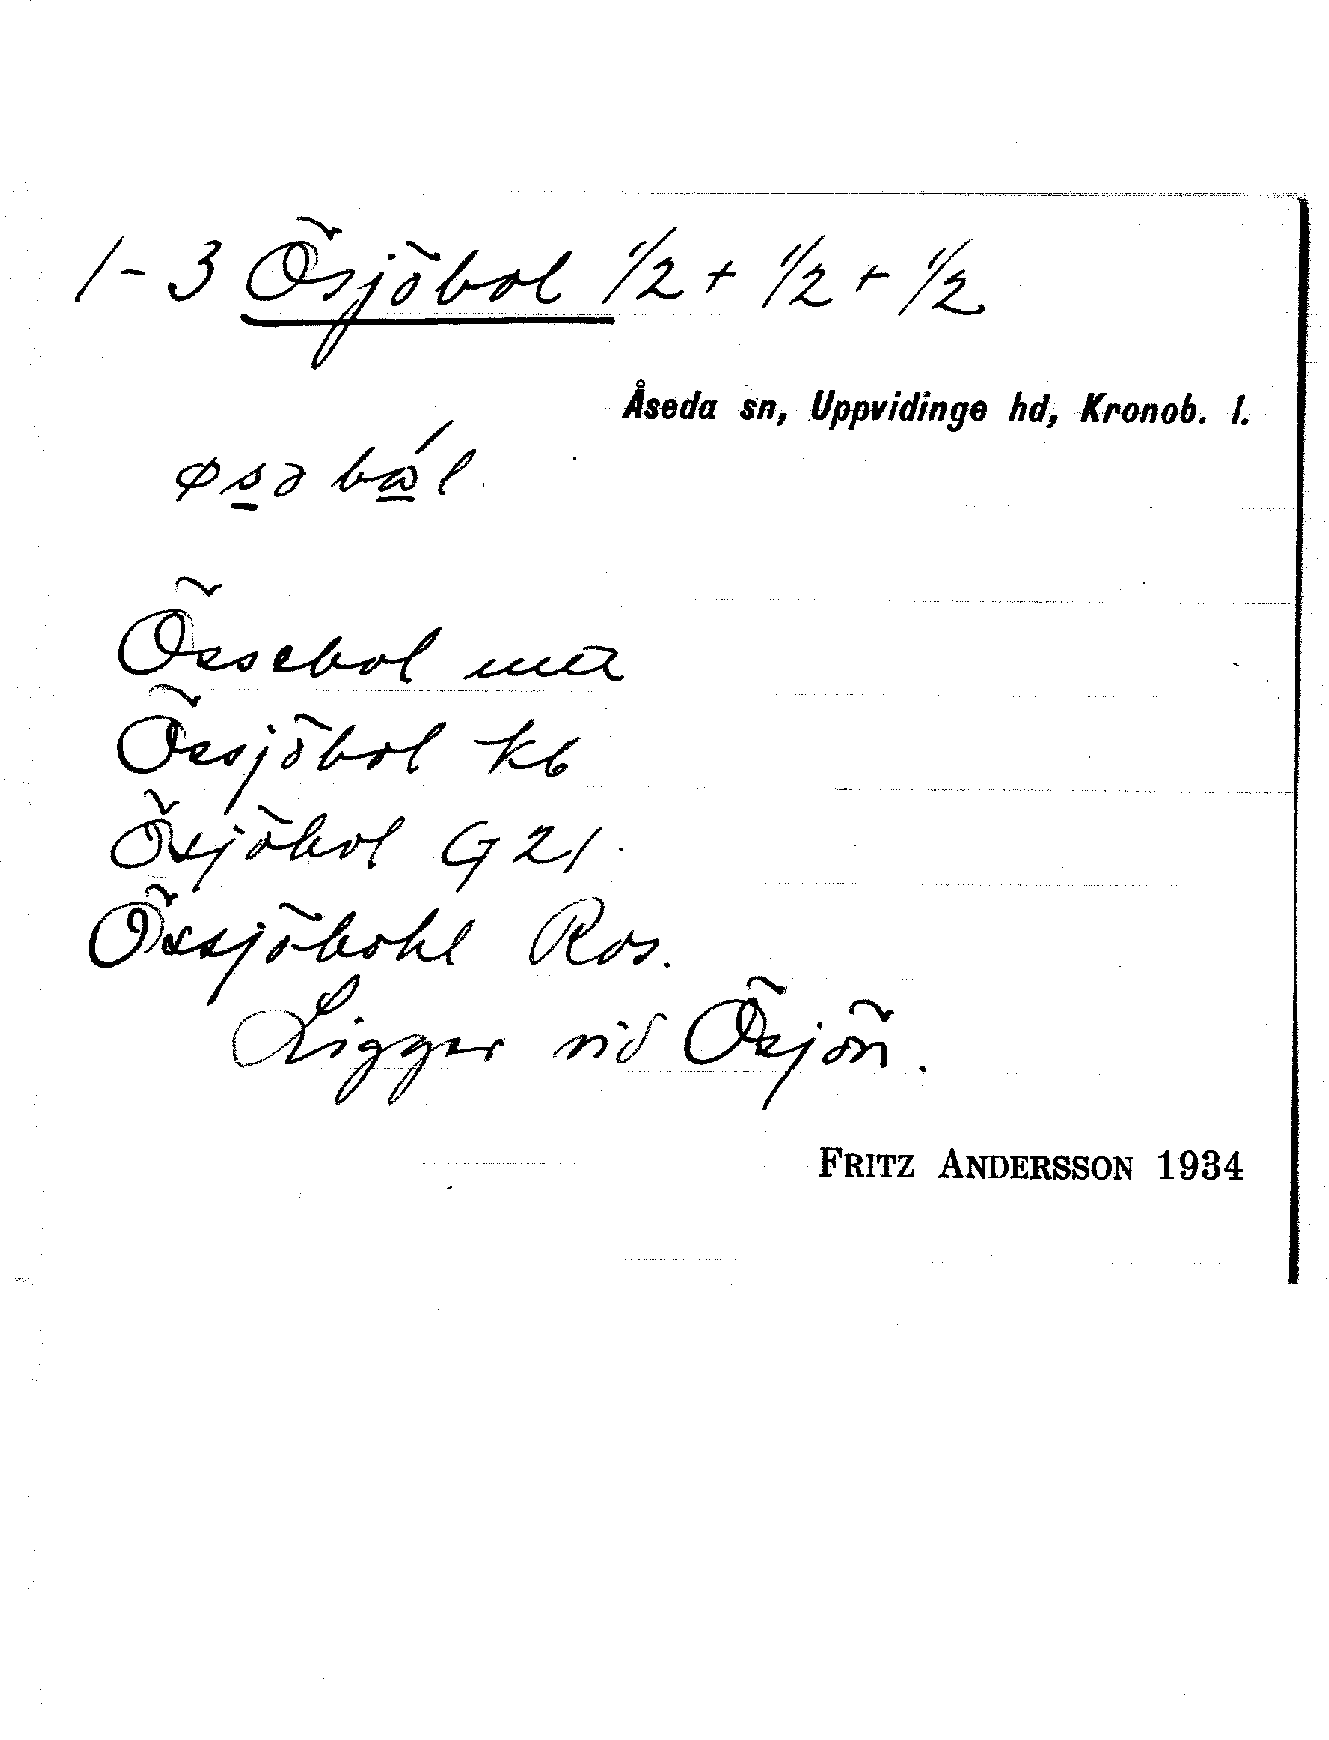 1-3 Ösjöbol 1/2 + 1/2 + 1/2
Åseda sn, Uppvidinge hd, Kronob. l.
øsə bål
Össebol uta
Össjöbol kb
Ösjöbol G 21.
Össjöbohl Ros.
Ligger vid Ösjön.
FRITZ ANDERSSON 1934